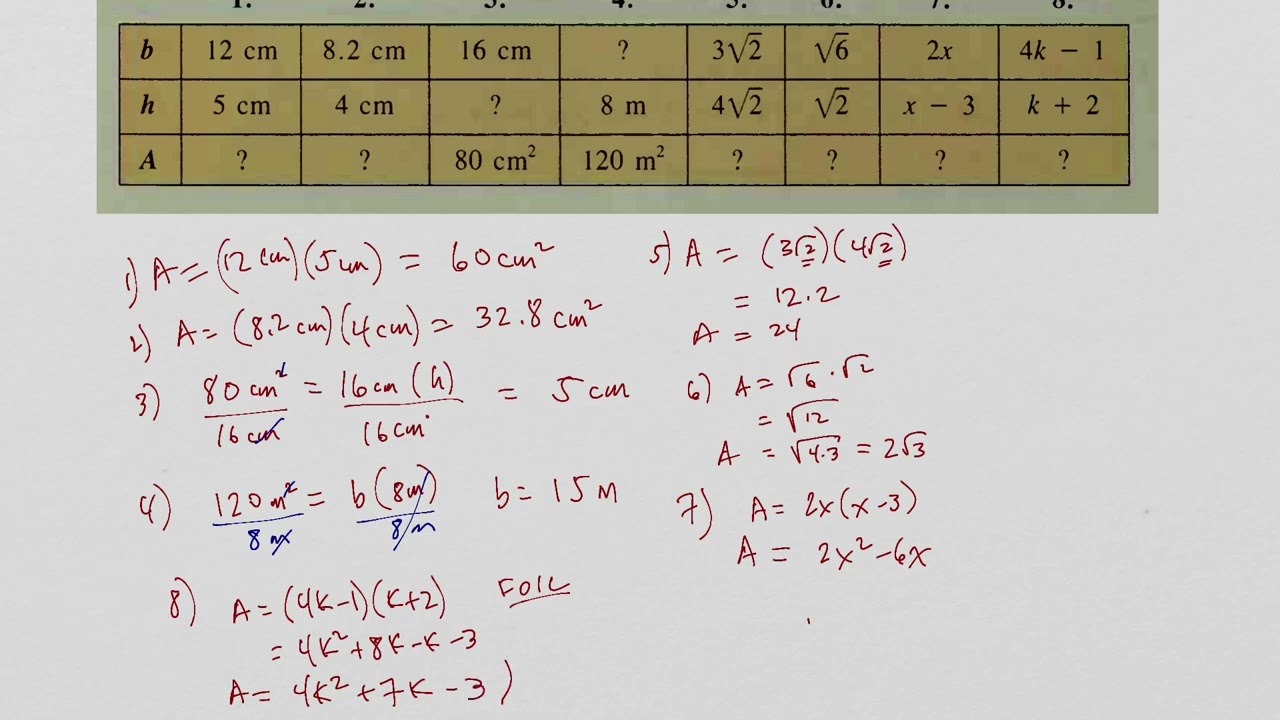 1. 2. 3. 4. 5. 6. 7. 8.
b 12 cm 8.2 cm 16 cm ? 3√2 √6 2x 4k − 1
h 5 cm 4 cm ? 8 m 4√2 √2 x − 3 k + 2
A ? ? 80 cm² 120 m² ? ? ? ?
1) A = (12 cm)(5 cm) = 60 cm²
2) A = (8.2 cm)(4 cm) = 32.8 cm²
3) 80 cm² = 16 cm (h) = 5 cm
16 cm 16 cm
4) 120 m² = b (8m) b = 15 M
8 m 8 m
8) A = (4k-1)(k+2) FOIL
= 4k² + 8k - k - 3
A = 4k² + 7k - 3)
5) A = (3√2)(4√2)
= 12 . 2
A = 24
6) A = √6 . √2
= √12
A = √4.3 = 2√3
7) A = 2x(x-3)
A = 2x² - 6x